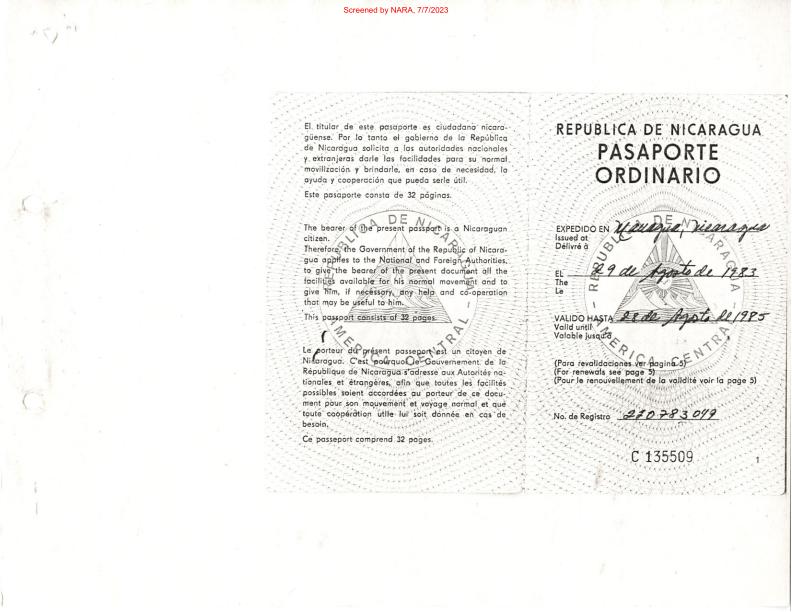 Screened by NARA, 7/7/2023
El titular de este pasaporte es ciudadano nicara-
güense. Por lo tanto el gobierno de la República
de Nicaragua solicita a las autoridades nacionales
y extranjeras darle las facilidades para su normal
movilización y brindarle, en caso de necesidad, la
ayuda y cooperación que pueda serle útil.
Este pasaporte consta de 32 páginas.
The bearer of the present passport is a Nicaraguan
citizen.
Therefore, the Government of the Republic of Nicara-
gua applies to the National and Foreign Authorities,
to give the bearer of the present document all the
facilities available for his normal movement and to
give him, if necessary, any help and co-operation
that may be useful to him.
This passport consists of 32 pages.
Le porteur du présent passeport est un citoyen de
Nicaragua. C'est pourquoi le Gouvernement de la
République de Nicaragua s'adresse aux Autorités na-
tionales et étrangères, afin que toutes les facilités
possibles soient accordées au porteur de ce docu-
ment pour son mouvement et voyage normal et que
toute coopération utile lui soit donnée en cas de
besoin.
Ce passeport comprend 32 pages.
REPUBLICA DE NICARAGUA
AMERICA CENTRAL
REPUBLICA DE NICARAGUA
PASAPORTE
ORDINARIO
EXPEDIDO EN Managua, Nicaragua
Issued at
Délivré à
EL 29 de Agosto de 1983
The
Le
VALIDO HASTA 28 de Agosto de 1985
Valid until
Valable jusqu'à
(Para revalidaciones ver pagina 5)
(For renewals see page 5)
(Pour le renouvellement de la validité voir la page 5)
No. de Registro 270783049
C 135509
1
REPUBLICA DE NICARAGUA
AMERICA CENTRAL